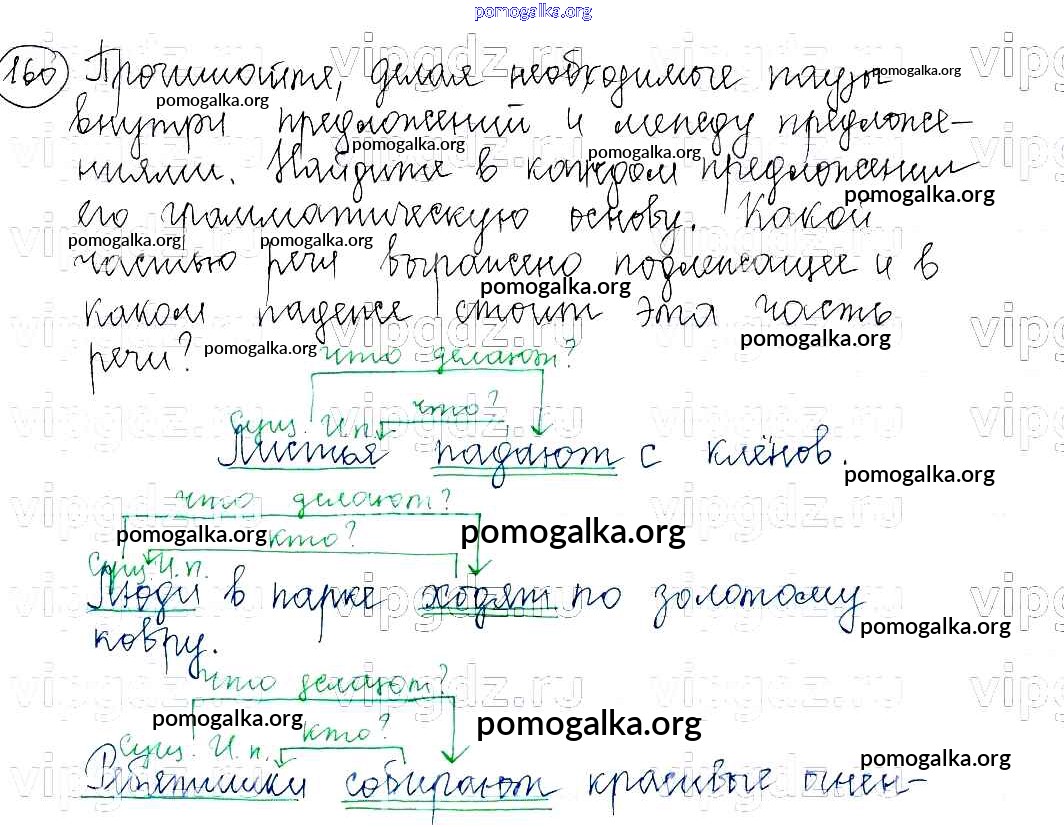 pomogalka.org
160 Прочитайте, делая необходимые паузы
внутри предложений и между предложе-
ниями. Найдите в каждом предложении
его грамматическую основу. Какой
частью речи выражено подлежащее и в
каком падеже стоит эта часть
речи?
что делают?
что?
Сущ. И.п.
Листья падают с клёнов.
что делают?
кто?
Сущ. И.п.
Люди в парке ходят по золотому
ковру.
что делают?
кто?
Сущ. И.п.
Ребятишки собирают красивые опен-
pomogalka.org
vipgdz.ru